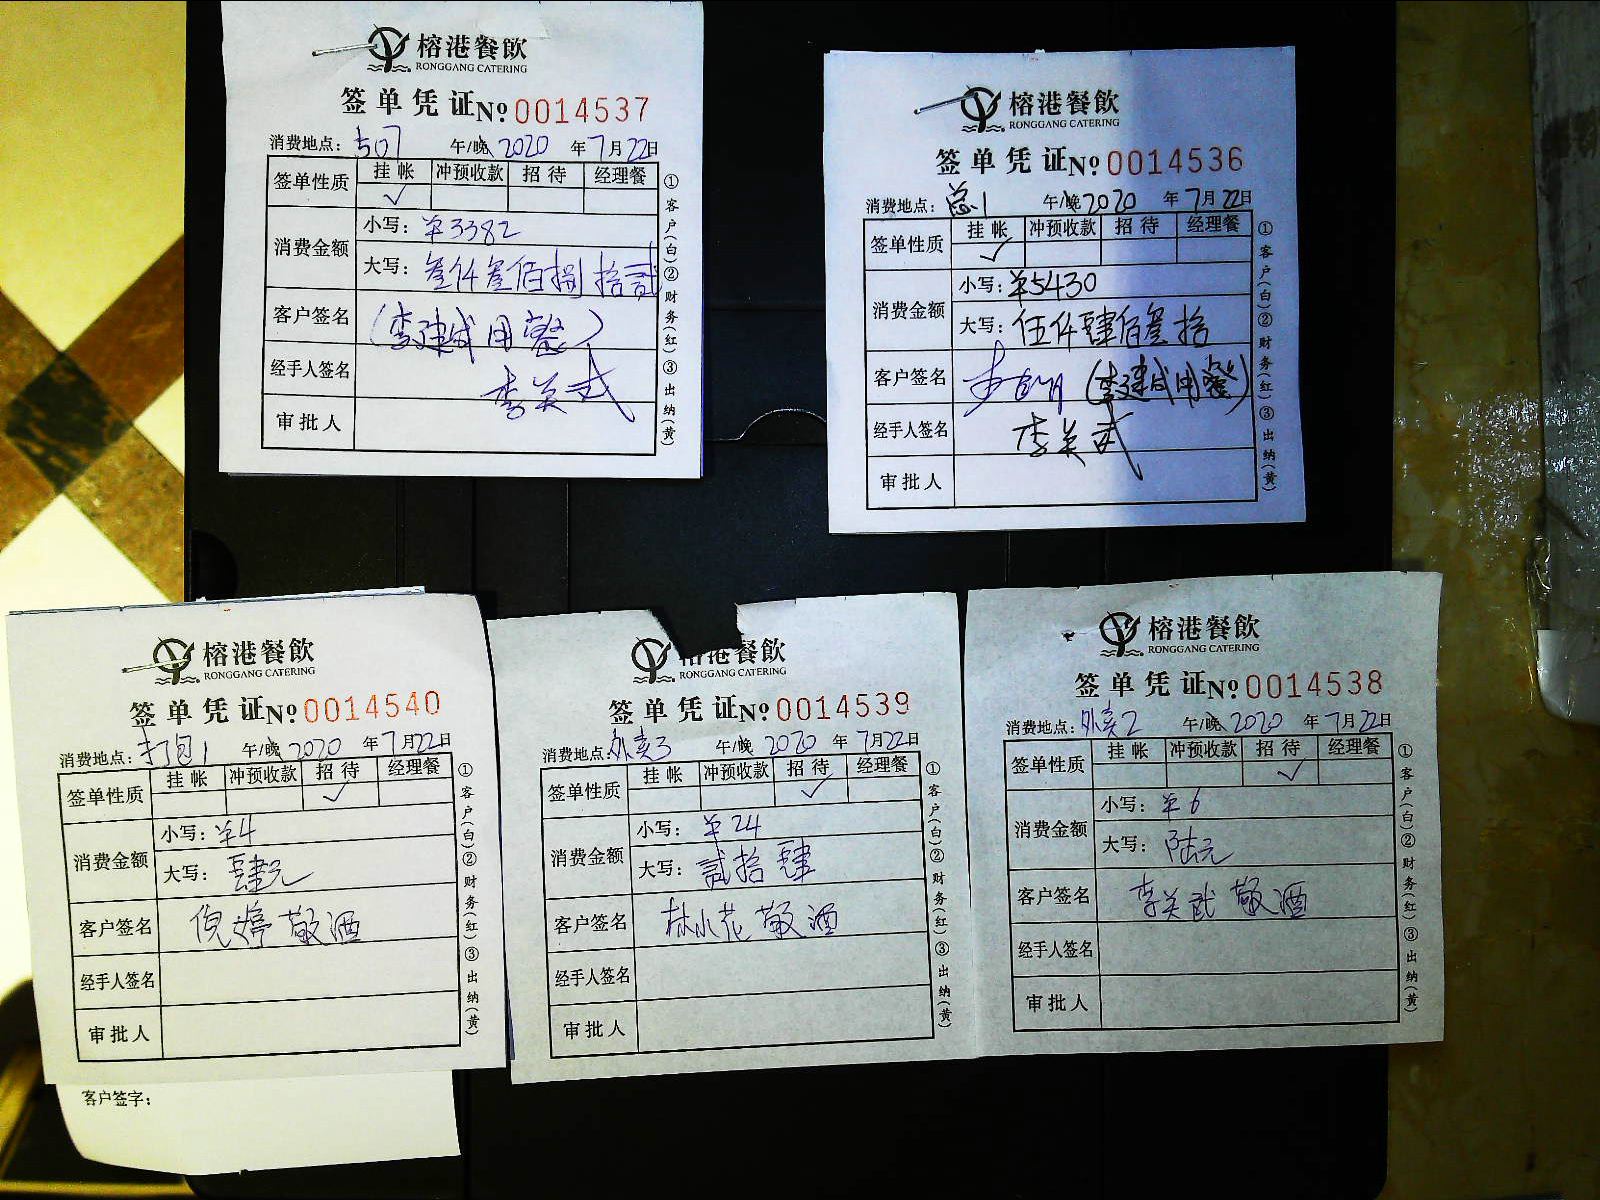 榕港餐飲
RONGGANG CATERING
签单凭证 №0014537
消费地点： 午/晚 2020 年 7月 22日
签单性质 挂帐 冲预收款 招待 经理餐
✓
消费金额 小写：￥3382
大写：叁仟叁佰捌拾贰
客户签名 (李建成用餐)
经手人签名 李关武
审批人
①客户(白)②财务(红)③出纳(黄)
榕港餐飲
RONGGANG CATERING
签单凭证 №0014536
消费地点：总1 午/晚 2020 年 7月 22日
签单性质 挂帐 冲预收款 招待 经理餐
✓
消费金额 小写：￥5430
大写：伍仟肆佰叁拾
客户签名 (李建成用餐)
经手人签名 李关武
审批人
①客户(白)②财务(红)③出纳(黄)
榕港餐飲
RONGGANG CATERING
签单凭证 №0014540
消费地点：打包1 午/晚 2020 年 7月 22日
签单性质 挂帐 冲预收款 招待 经理餐
✓
消费金额 小写：￥4
大写：肆元
客户签名 倪婷敬酒
经手人签名
审批人
①客户(白)②财务(红)③出纳(黄)
客户签字：
榕港餐飲
RONGGANG CATERING
签单凭证 №0014539
消费地点：外卖3 午/晚 2020 年 7月 22日
签单性质 挂帐 冲预收款 招待 经理餐
✓
消费金额 小写：￥24
大写：贰拾肆
客户签名 林小花敬酒
经手人签名
审批人
①客户(白)②财务(红)③出纳(黄)
榕港餐飲
RONGGANG CATERING
签单凭证 №0014538
消费地点：外卖2 午/晚 2020 年 7月 22日
签单性质 挂帐 冲预收款 招待 经理餐
✓
消费金额 小写：￥6
大写：陆元
客户签名 李关武敬酒
经手人签名
审批人
①客户(白)②财务(红)③出纳(黄)